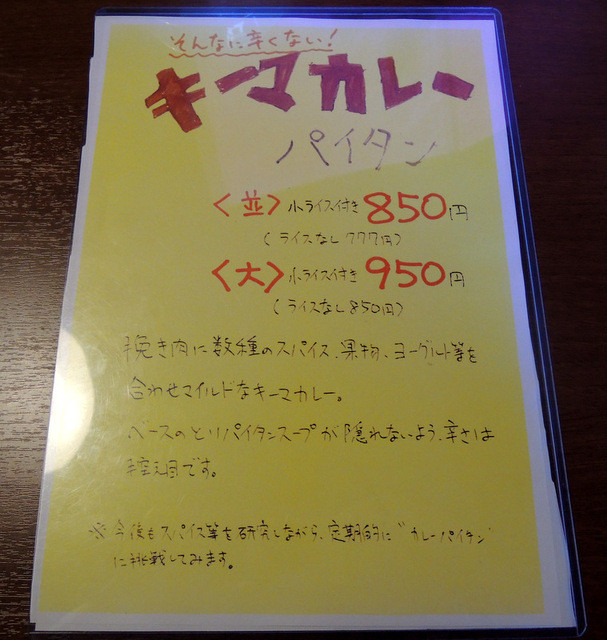 そんなに辛くない!
キーマカレー
パイタン
〈並〉小ライス付き 850円
(ライスなし777円)
〈大〉小ライス付き 950円
(ライスなし850円)
挽き肉に数種のスパイス、果物、ヨーグルト等を
合わせマイルドなキーマカレー。
ベースのとりパイタンスープが隠れないよう、辛さは
控え目です。
※今後もスパイス等を研究しながら、定期的に"カレーパイタン"
に挑戦してみます。